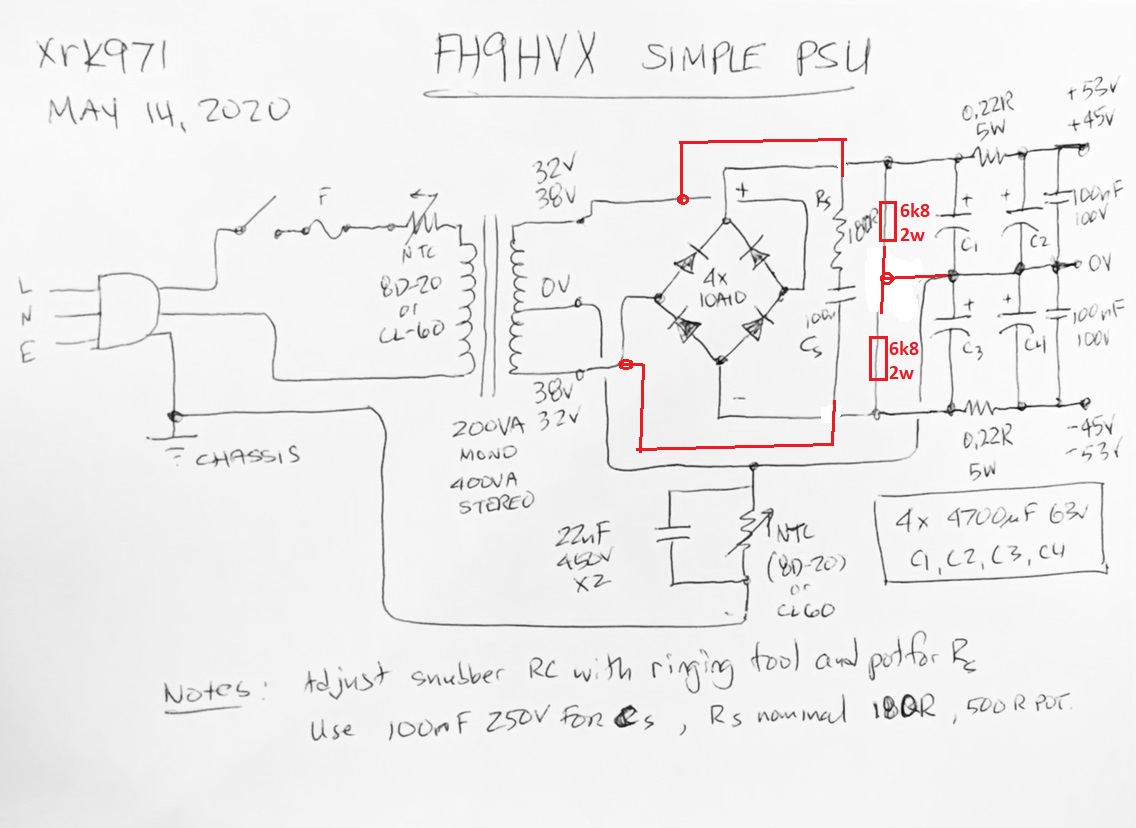 XrK971
FH9HVX SIMPLE PSU
MAY 14, 2020
+53V
+45V
0,22R
5W
32V
38V
F
NTC
8D-20
or
CL-60
L
N
E
CHASSIS
0V
38V
32V
200VA
MONO
400VA
STEREO
+
4x
10A10
-
Rs
180R
100n
Cs
6k8
2w
6k8
2w
+
C1
+
C2
100nF
100V
0V
+
C3
+
C4
100nF
100V
0,22R
5W
-45V
-53V
4x 4700uF 63V
C1, C2, C3, C4
22nF
450V
X2
NTC
(8D-20)
or
CL60
Notes: Adjust snubber RC with ringing tool and pot for Rs
Use 100nF 250V For Cs, Rs nominal 180R, 500R POT.